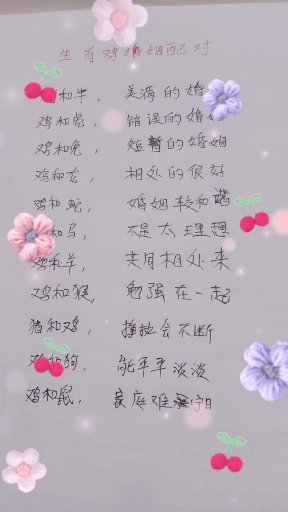 生肖鸡婚姻配对
和牛，美满的婚
鸡和虎，错误的婚
鸡和兔，短暂的婚姻
鸡和龙，相处的很好
鸡和蛇，婚姻较和谐
和马，不是太理想
鸡和羊，共同相处来
鸡和猴，勉强在一起
猪和鸡，挣扎会不断
鸡和狗．能平平淡淡
鸡和鼠，家庭难宁日